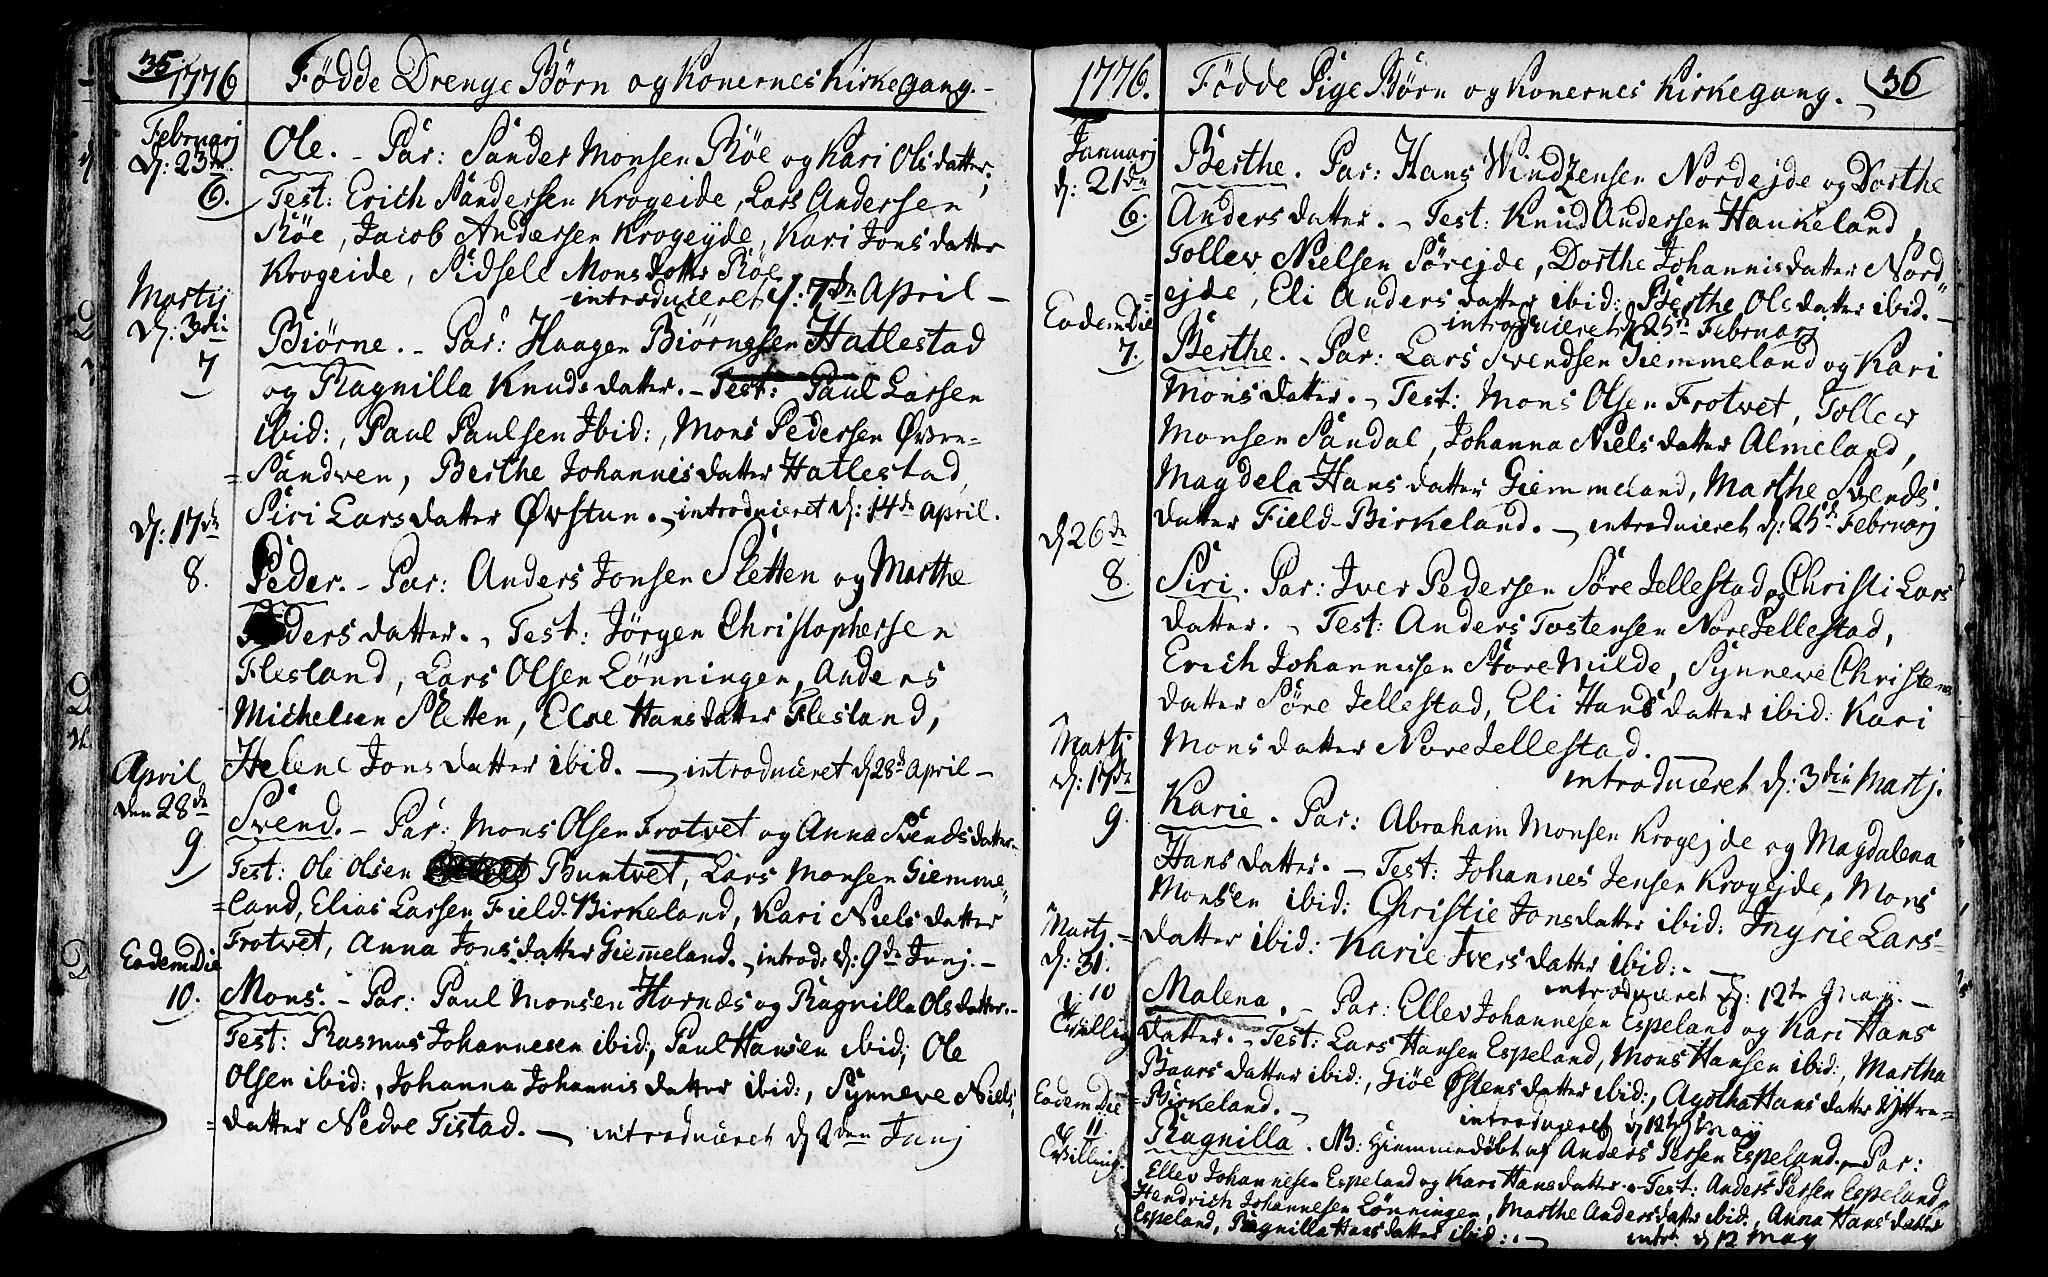 35
1776
Födde Drenge Börn og Konernes Kirkegang.-
Februarj
d: 23de
6.
Ole. - Par: Sander Monsen Röe og Kari Olsdatter,
Test: Erich Sandersen Krogeide, Lars Andersen
Röe, Jacob Andersen Krogejde, Kari Jonsdatter
Krogeide, Sidsele Monsdatter Röe
introduceret d: 7de April -
Martij
d: 3die
7
Biörne. - Par: Haagen Biörnesen Hatlestad
og Ragnilla Knudsdatter. - Test: Paul Larsen
ibid:, Paul Paulsen Ibid:, Mons Pedersen Øvre-
=Sandven, Berthe Johannisdatter Hatlestad,
Siri Larsdatter Øvstun. - introduceret d: 14de April.
d: 17de
8.
Peder. - Par: Anders Jonsen Sletten og Marthe
Pedersdatter. - Test: Jörgen Christophersen
Flesland, Lars Olsen Lönningen, Anders
Michelsen Sletten, Else Hansdatter Flesland,
Helene Jonsdatter ibid. - introduceret d 28de April -
April
den 28de
9
Svend. - Par: Mons Olsen Trotvet og Anna Svendsdatter.-
Test: Ole Olsen Buntvet, Lars Monsen Giemme=
=land, Elias Larsen Field-Birkeland, Kari Nielsdatter
Trotvet, Anna Jonsdatter Giem̅eland. - introd: d: 9de Junj. -
Eodem Die
10.
Mons. - Par: Paul Monsen Hornæs og Ragnilla Olsdatter.-
Test: Rasmus Johannesen ibid:, Paul Hansen ibid:, Ole
Olsen ibid:, Johanna Johannisdatter ibid:, Synneve Niels=
=datter Nedre Tistad. - introduceret d 2den Junj
1776.
Födde Pige Börn og Konernes Kirkegang. -
36
Januarj
d: 21de
6.
Berthe. Par: Hans Windzensen Nordejde og Dorthe
Andersdatter. - Test: Knud Andersen Haukeland,
Tollev Nielsen Sörejde, Dorthe Johannisdatter Nord=
=ejde, Eli Andersdatter ibid: Berthe Olsdatter ibid. -
introduceret d 25de Februarj
Eodem Die
7.
Berthe. - Par: Lars Svendsen Giemmeland og Kari
Monsdatter. - Test: Mons Olsen Trotvet, Tollev
Monsen Sandal, Johanna Nielsdatter Almeland,
Magdela Hansdatter Giemmeland, Marthe Svends=
datter Field-Birkeland. - introduceret d: 25de Februarj
d 26de
8.
Siri. Par: Iver Pedersen Söre Jellestad og Christi Lars
datter. - Test: Anders Tostensen Nore Jellestad,
Erich Johannessen Store Milde, Synneve Christens
datter Söre Jellestad, Eli Hansdatter ibid: Kari
Monsdatter Nore Jellestad. -
introduceret d: 3die Martj.
Martj
d: 17de
9.
Karie. Par: Abraham Monsen Krogejde og Magdalena
Hansdatter. - Test: Johannes Jensen Krogejde, Mons
Monsen ibid: Christie Jonsdatter ibid: Ingrie Lars-
datter ibid: Karie Iversdatter ibid:. -
introduceret d: 12te Maij. -
Martj. -
d: 31.
10
Tvilling
Malena. - Par: Ellev Johannesen Espeland og Kari Hans
datter. - Test: Lars Hansen Espeland, Mons Hansen ibid:, Martha
Baarsdatter ibid:, Giöe Østensdatter ibid:, Agotha Hansdatter Yttre=
=Birkeland. -
introduceret d 12te Maÿ
Eodem Die
11
Tvilling.
Ragnilla. NB: Hiemmedöbt af Anders Persen Espeland. - Par:
Ellev Johannesen Espeland og Kari Hansdatter. - Test: Anders Persen Espeland,
Hendrich Johannesen Lönningen, Marthe Andersdatter ibid:, Anna Hansdatter
Espeland, Ragnilla Hansdatter ibid:. -
intr: d 12 May